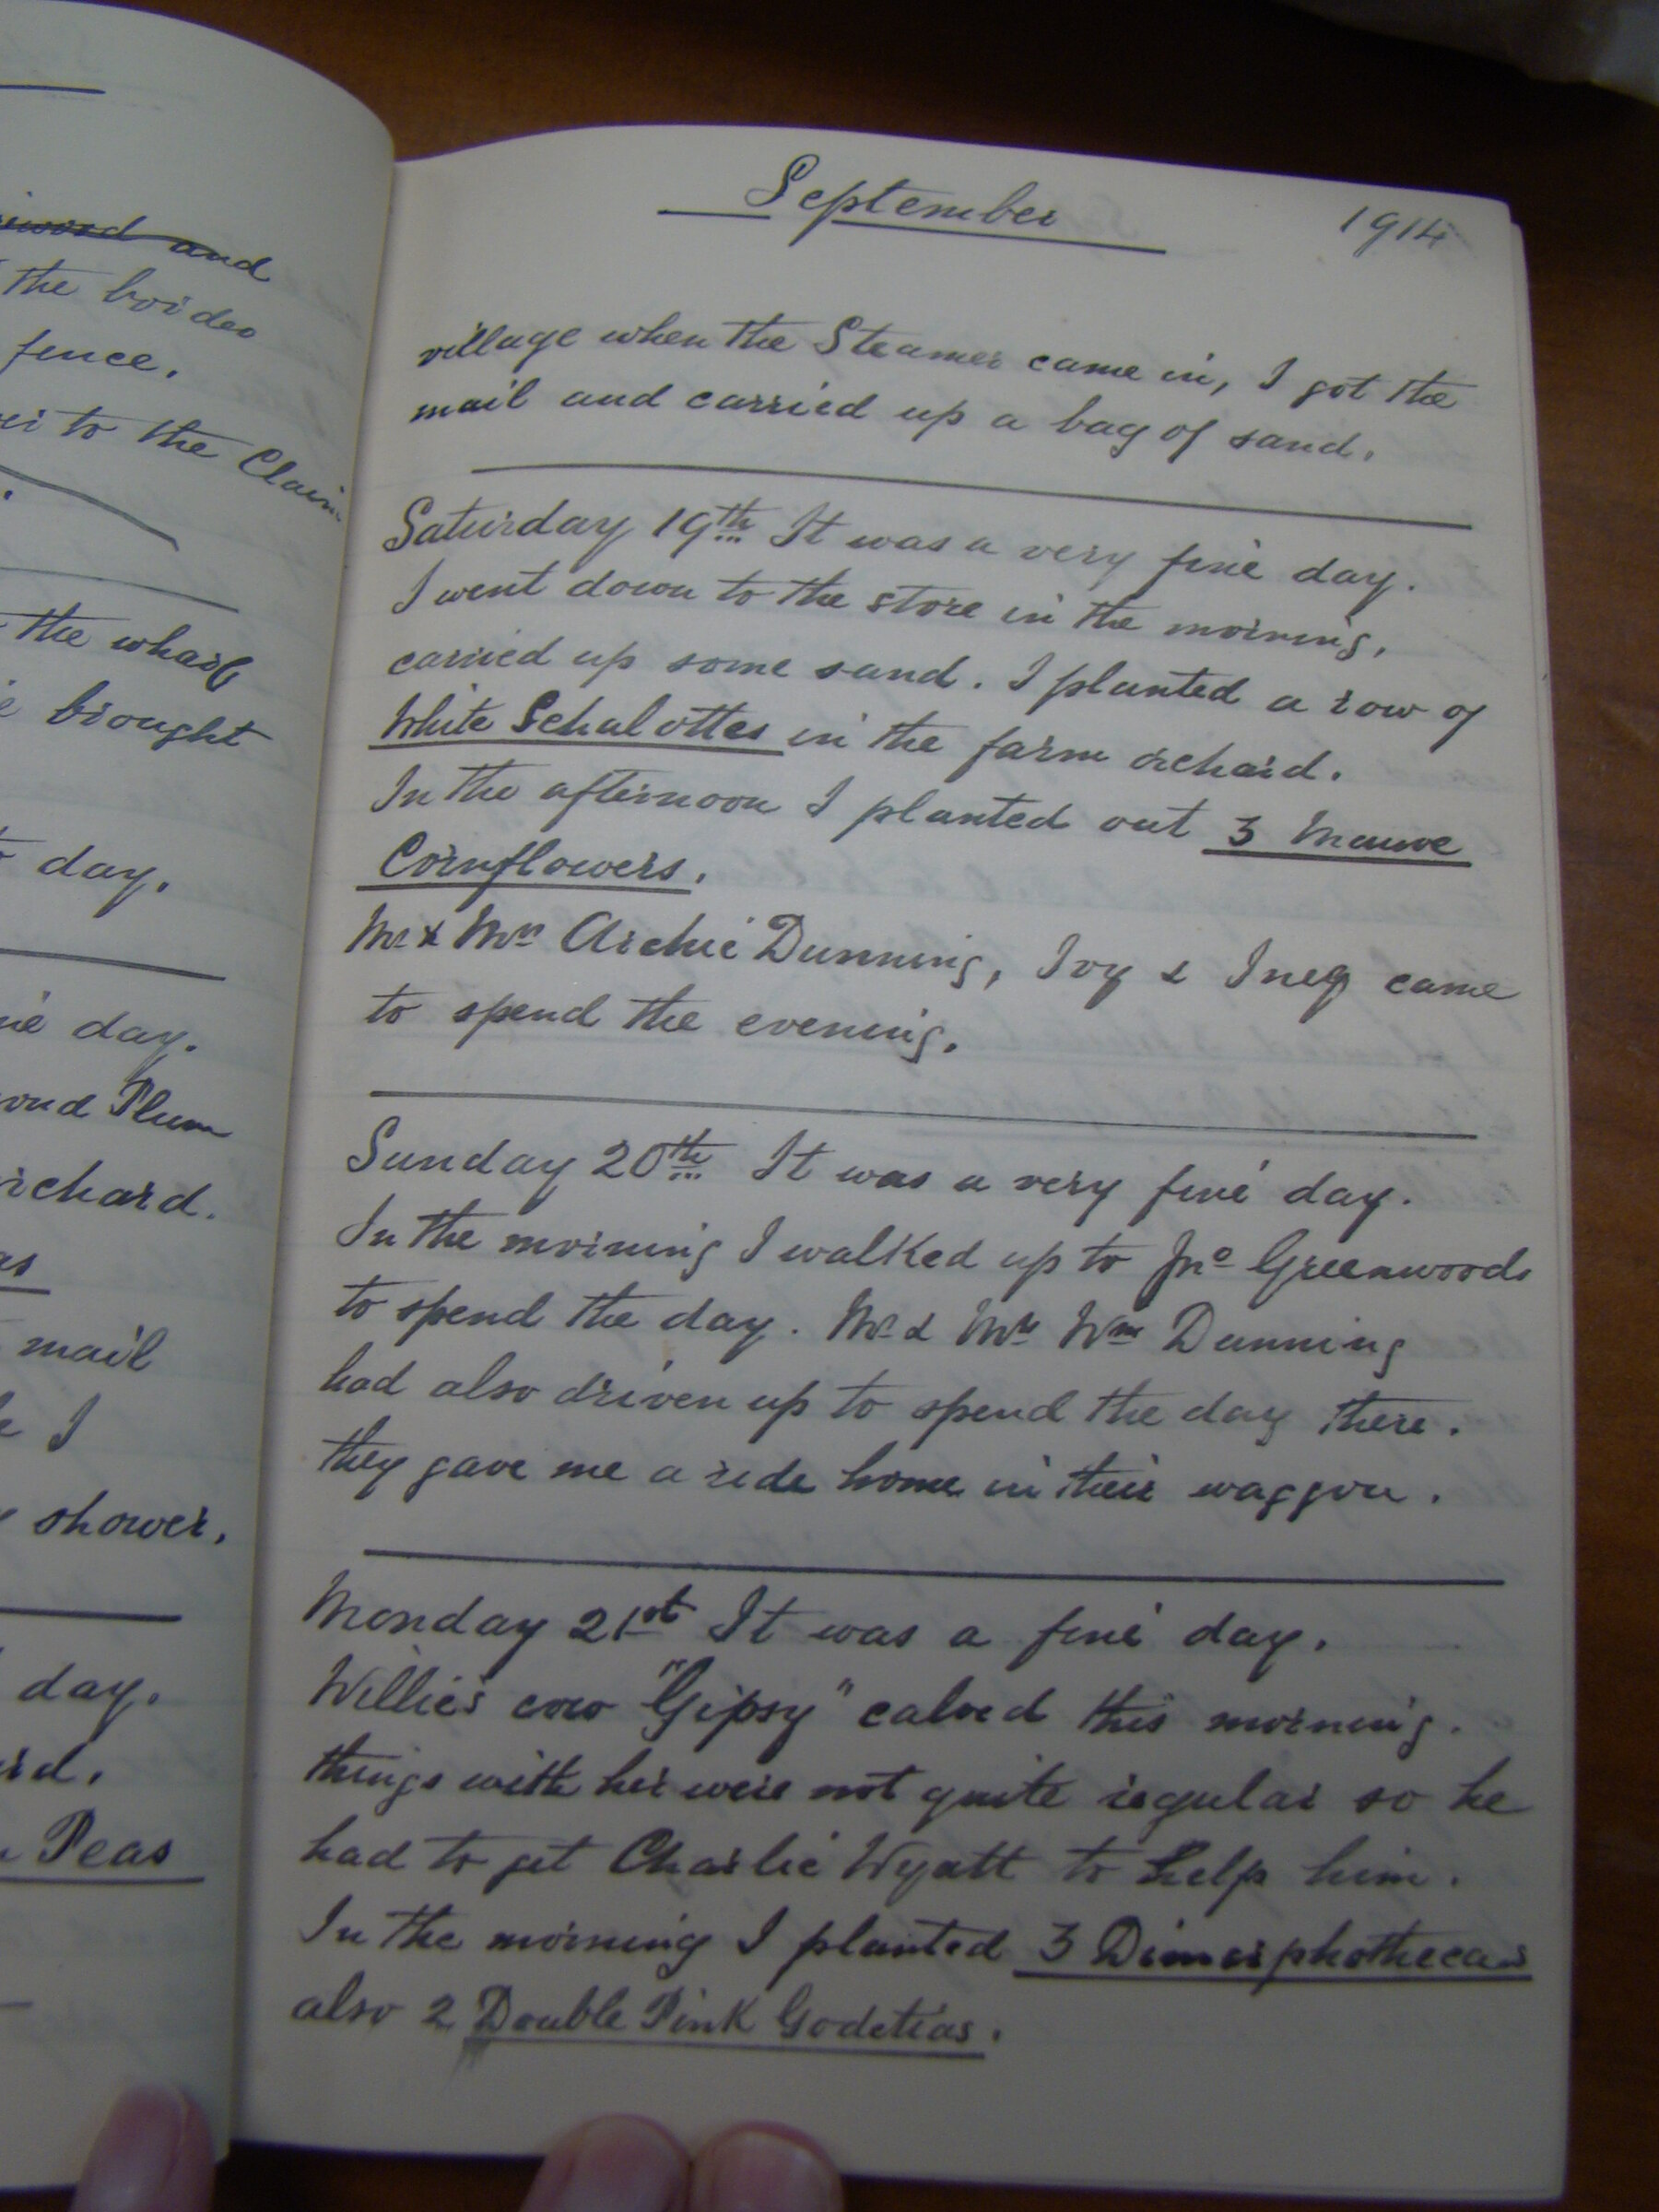 and
the border
fence.
to the Claim
the wharf
brought
day.
day.
Plum
mail
I
shower.
day.
Peas
September 1914
village when the Steamer came in, I got the
mail and carried up a bag of sand.
Saturday 19th It was a very fine day.
I went down to the store in the morning,
carried up some sand. I planted a row of
White Schalottes in the farm orchard.
In the afternoon I planted out 3 Mauve
Cornflowers.
Mr & Mrs Archie Dunning, Ivy & Inez came
to spend the evening.
Sunday 20th It was a very fine day.
In the morning I walked up to Jno Greenwoods
to spend the day. Mr & Mrs Wm Dunning
had also driven up to spend the day there.
they gave me a ride home in their waggon.
Monday 21st It was a fine day.
Willie's cow "Gipsy" calved this morning.
things with her were not quite regular so he
had to get Charlie Wyatt to help him.
In the morning I planted 3 Dimorphothecas
also 2 Double Pink Godetias.